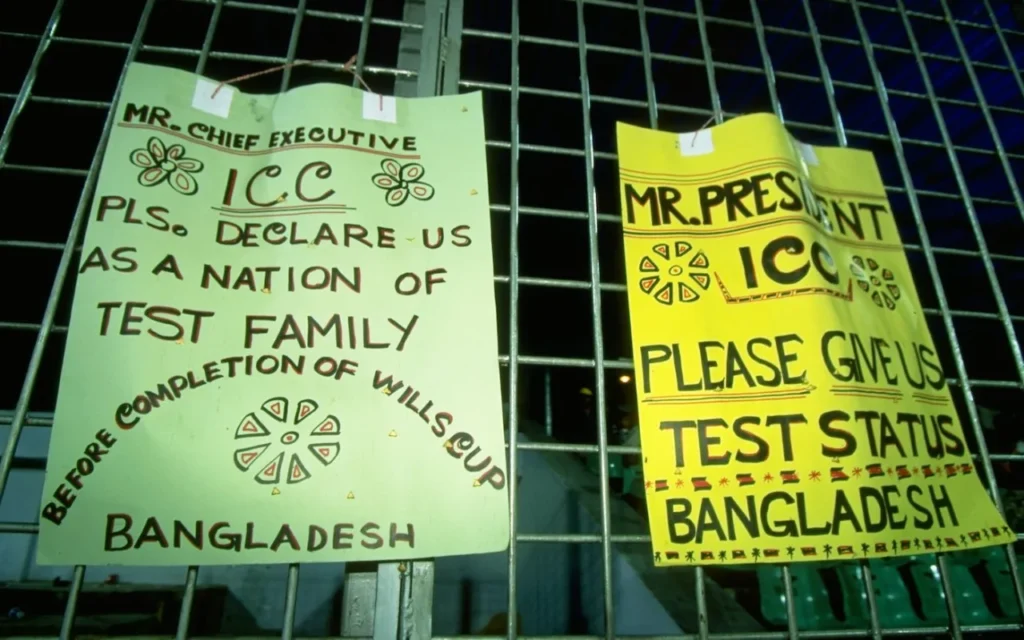 MR. CHIEF EXECUTIVE
ICC
PLS. DECLARE US
AS A NATION OF
TEST FAMILY
BEFORE COMPLETION OF WILLS CUP
BANGLADESH
MR. PRESIDENT
ICC
PLEASE GIVE US
TEST STATUS
BANGLADESH